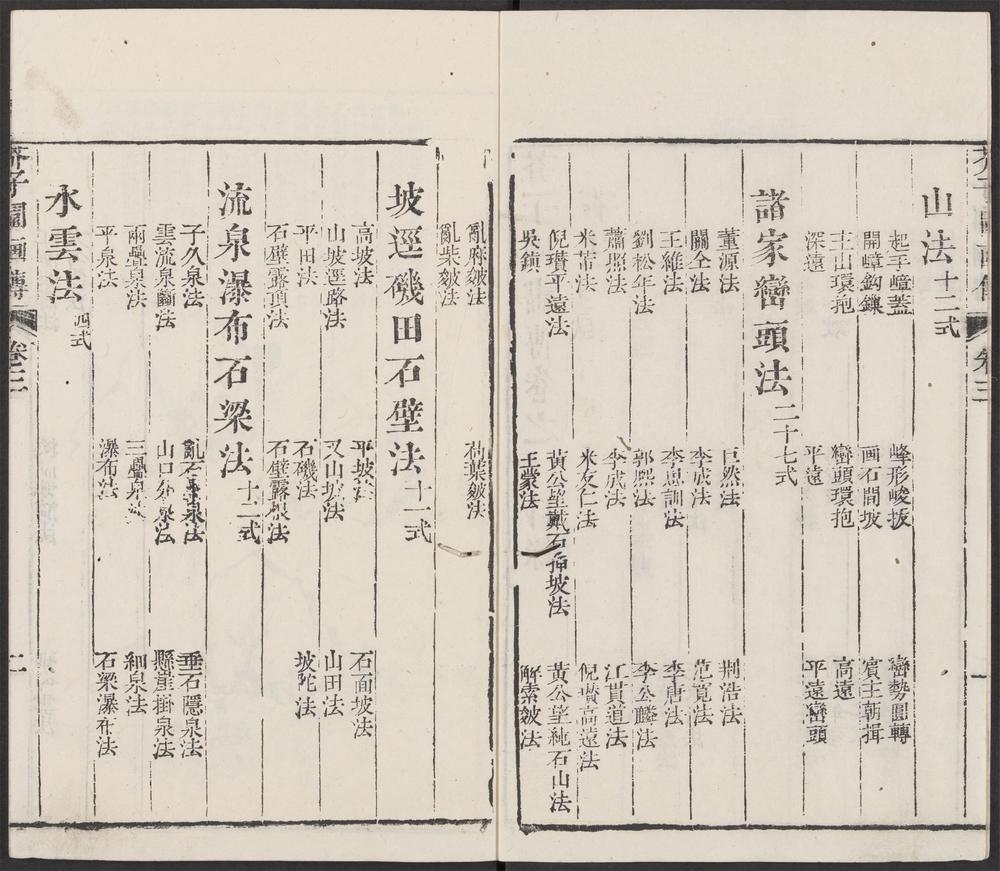 芥子園畫傳 卷三 一
山法 十二式
起手嶂蓋 峰形峻拔 巒勢圓轉
開嶂鈎鎖 画石間坡 賓主朝揖
主山環抱 巒頭環抱 高遠
深遠 平遠 平遠巒頭
諸家巒頭法 二十七式
董源法 巨然法 荆浩法
關仝法 李成法 范寬法
王維法 李思訓法 李唐法
劉松年法 郭熙法 李公麟法
蕭照法 李成法 江貫道法
米芾法 米友仁法 倪瓚高遠法
倪瓚平遠法 黃公望戴石坡法 黃公望純石山法
吳鎮 王蒙法 解索皴法
亂麻皴法 荷葉皴法
亂柴皴法
坡逕磯田石壁法 十一式
高坡法 平坡法 石面坡法
山坡逕路法 又山坡法 山田法
平田法 石磯法 坡陀法
石壁露頂法 石壁露根法
流泉瀑布石梁法 十二式
子久泉法 亂石疊泉法 垂石隱泉法
雲流泉斷法 山口分泉法 懸崖掛泉法
兩疊泉法 三疊泉法 細泉法
平泉法 瀑布法 石梁瀑布法
水雲法 四式
芥子園畫傳 卷三 二